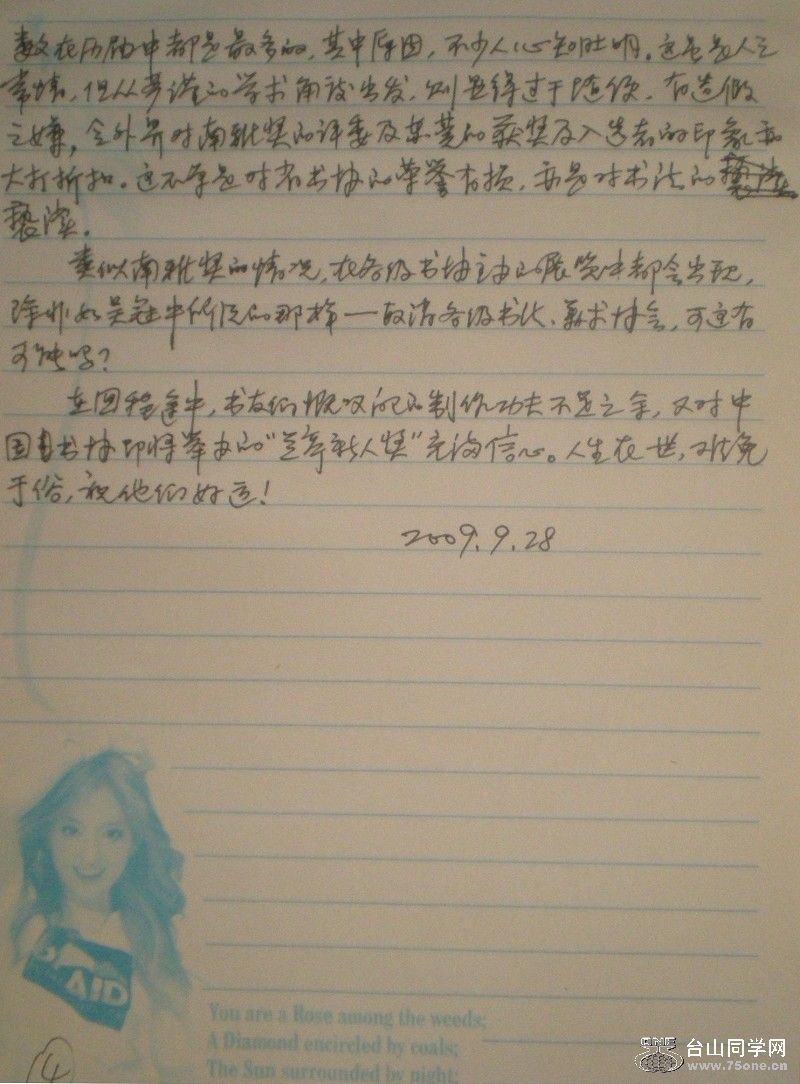 数在历届中都是最多的,其中原因,不少人心知肚明。这虽是人之
常情,但从严谨的学术角度出发,则显得过于随便,有造假
之嫌,令外界对南雅奖的评委及某些的获奖及入选者的印象而
大打折扣。这不单是对省书协的荣誉有损,亦是对书法的
亵渎。
类似南雅奖的情况,在各级书协主办的展览中都会出现,
除非如吴冠中所说的那样—取消各级书法、美术协会,可这有
可能吗?
在回程途中,书友们慨叹自己的制作功夫不足之余,又对中
国书协即将举办的"兰亭新人奖"充满信心。人生在世,难免
于俗,祝他们好运!
2009.9.28
AID
You are a Rose among the weeds;
A Diamond encircled by coals;
The Sun surrounded by night;
4
ONE 台山同学网
www.75one.cn